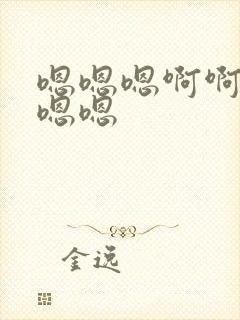 嗯嗯嗯啊啊
嗯嗯
金逸